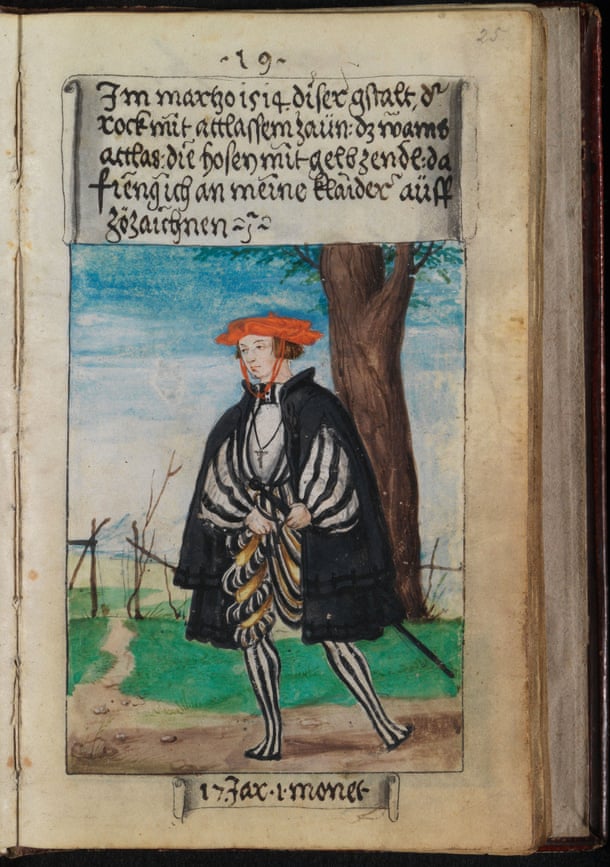 25
·19·
Im martzo 1514. diser gstalt, dr
rock mit attlassem zaün: dz wams
attlas: die hosen mit gelb zendl: da
fieng ich an meine klaider aüff
zözaichnen
17. Jar. 1. monet